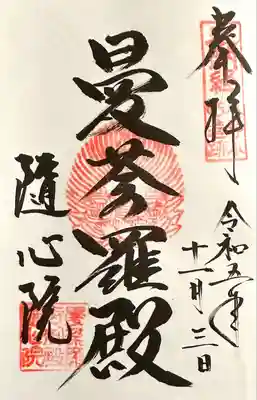 奉拝
令和五年
十一月三日
曼荼羅殿
隨心院